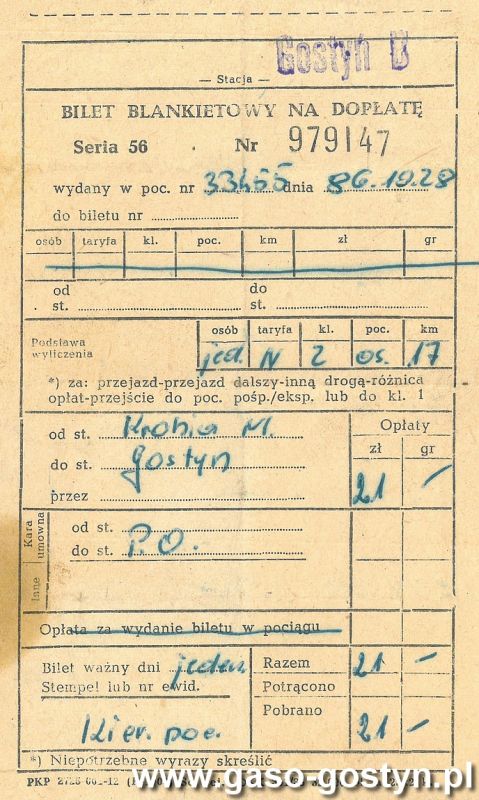 Gostyń B
— Stacja —
BILET BLANKIETOWY NA DOPŁATĘ
Seria 56 Nr 979147
wydany w poc. nr 33455 dnia 86.10.28
do biletu nr
osób taryfa kl. poc. km zł gr
od do
st. st.
osób taryfa kl. poc. km
Podstawa wyliczenia jed. N 2 os. 17
*) za: przejazd-przejazd dalszy-inną drogą-różnica
opłat-przejście do poc. pośp./eksp. lub do kl. 1
od st. Krobia M. Opłaty
do st. Gostyń zł gr
przez 21 —
Kara umowna
od st.
do st. P.O.
Inne
Opłata za wydanie biletu w pociągu
Bilet ważny dni jeden Razem 21 —
Stempel lub nr ewid. Potrącono
Kier. poc. Pobrano 21 —
*) Niepotrzebne wyrazy skreślić
PKP
www.gaso-gostyn.pl